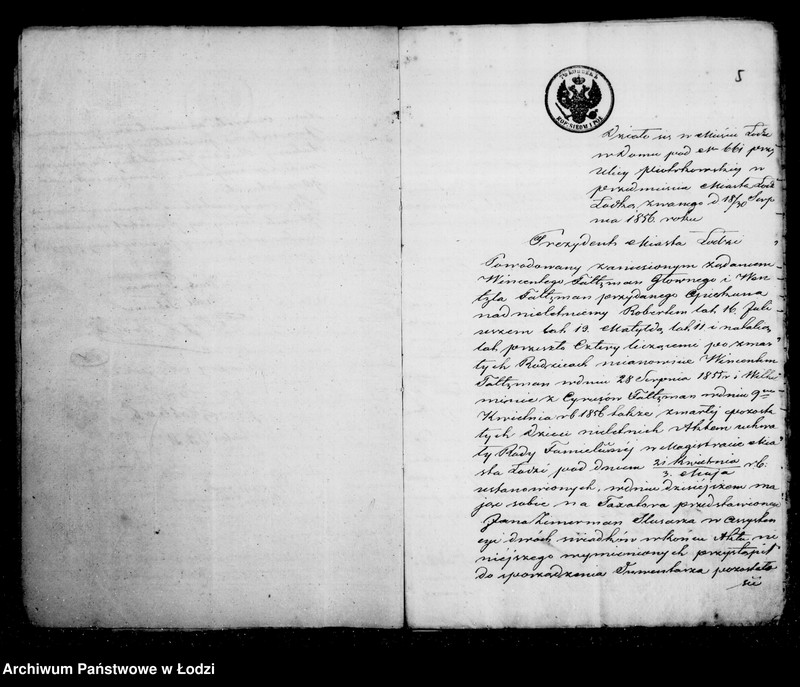 5
Działo się w Mieście Łodzi
w Domu pod No 661 przy
Ulicy Piotrkowskiej w
przedmieściu Miasta Łodzi
Łodka zwanego d 18/30 Sierp
nia 1856 roku
Prezydent Miasta Łodzi
Powodowany zaniesionym żądaniem
Wincentego Saltzman Głownego i Wen
tzla Saltzman przydanego Opiekuna
nad nieletniemy Robertem lat 16. Juli
uszem lat 13. Matyldą lat 11 i natalią
lat przeszło Cztery liczącemi po zmar
łych Rodzicach mianowicie Wincentem
Saltzman w dniu 28 Sierpnia 1855 r i Wilhe
minie z Saltzman w dniu 9
Kwietnia r b 1856 także zmarłej pozosta
łych Dzieci nieletnich Aktem uchwa
ły Rady Familijnej w Magistracie Mia
sta Łodzi pod dniem 21 Kwietnia / 3 Maja r b.
ustanowionych, w dniu dzisiejszem ma
jąc sobie na Taxatora przedstawionego
Jana Zimerman Slusarza w assysten
cyi dwóch świadków w końcu Aktu ni
niejszego wymienionych przystąpił
do sporządzenia Inwentarza pozostało
ści
Archiwum Państwowe w Łodzi